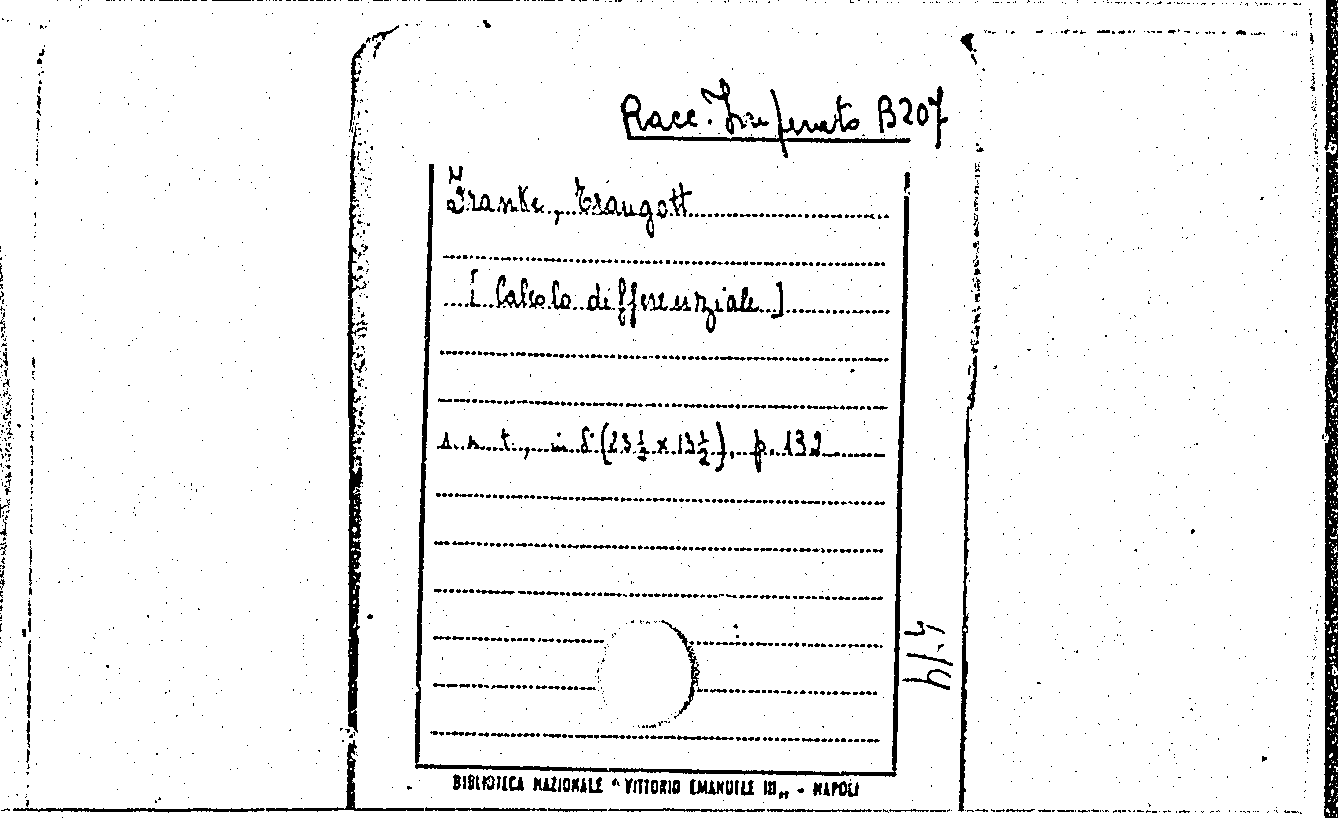 Racc. Imperato B 207
Franke, Traugott
[Calcolo differenziale]
s. n. t., in 8° (23 1/2 x 15 1/2), p. 132
BIBLIOTECA NAZIONALE "VITTORIO EMANUELE III„ - NAPOLI